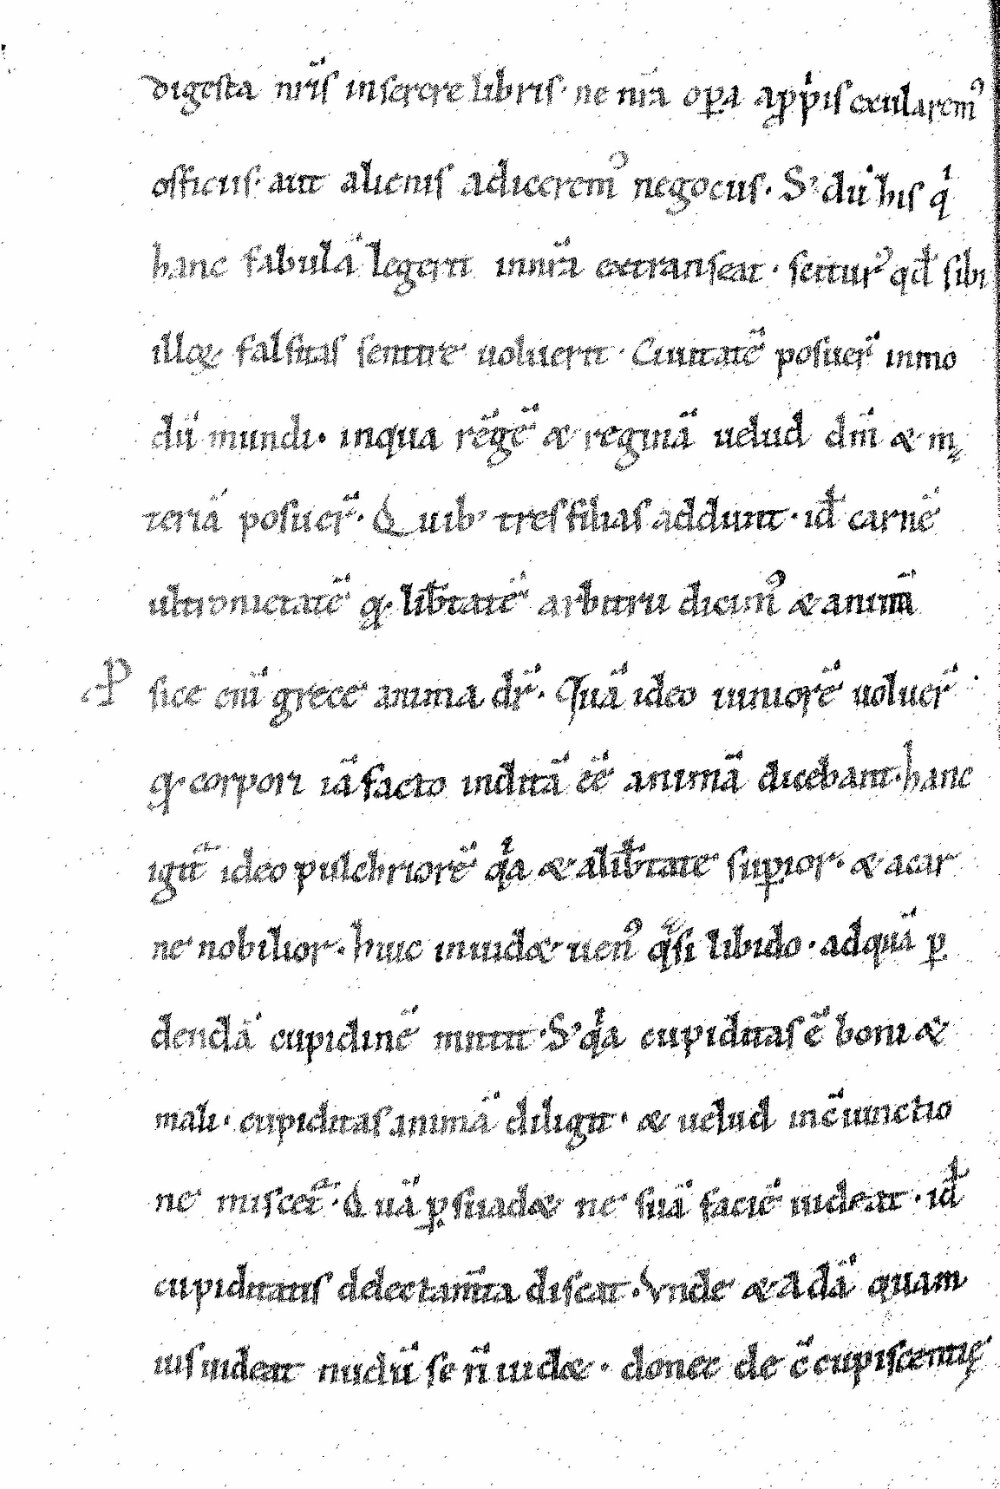 digesta nr̄is inserere libris· ne nr̄a oꝑa aꝓp̍is exularem᷒
officiis· aut alienis adicerem᷒ negociis· S; dū his q̍
hanc fabulā legerit in nr̄a extranseat· sciturꝰ qđ sibi
illor falsitas sentire uoluerit· Ciuitatē posuer̄ in mo
dū mundi· in qua rēgē & reginā uelud dm̄ & m
teriā posuer̄· Quib; tres filias addunt· id carnē
ultronietatē q· lib̄tatē arbitrii dicimꝰ & animā
P sice eni grece anima dr̄· Quā ideo iuniorē uoluer̄
q· corpori iā facto inditā eē animā dicebant· hanc
igit̄ ideo pulchriorē q̍a & a lib̄tate suꝑior· & a car
ne nobilior· huic inuid& uenꝰ q̄si libido· ad quā ꝑ
dendā cupidinē mittit· S; q̍a cupiditas ē boni &
mali· cupiditas animā diligit· & uelud in c̄iunctio
ne miscet̄· Quā ꝑsuad& ne suā faciē uideat· id
cupiditatis delectam̄ta discat· Vnde & adā quam
uis uideat nudū se n̄ uid& · donec de c̄cupiscentię